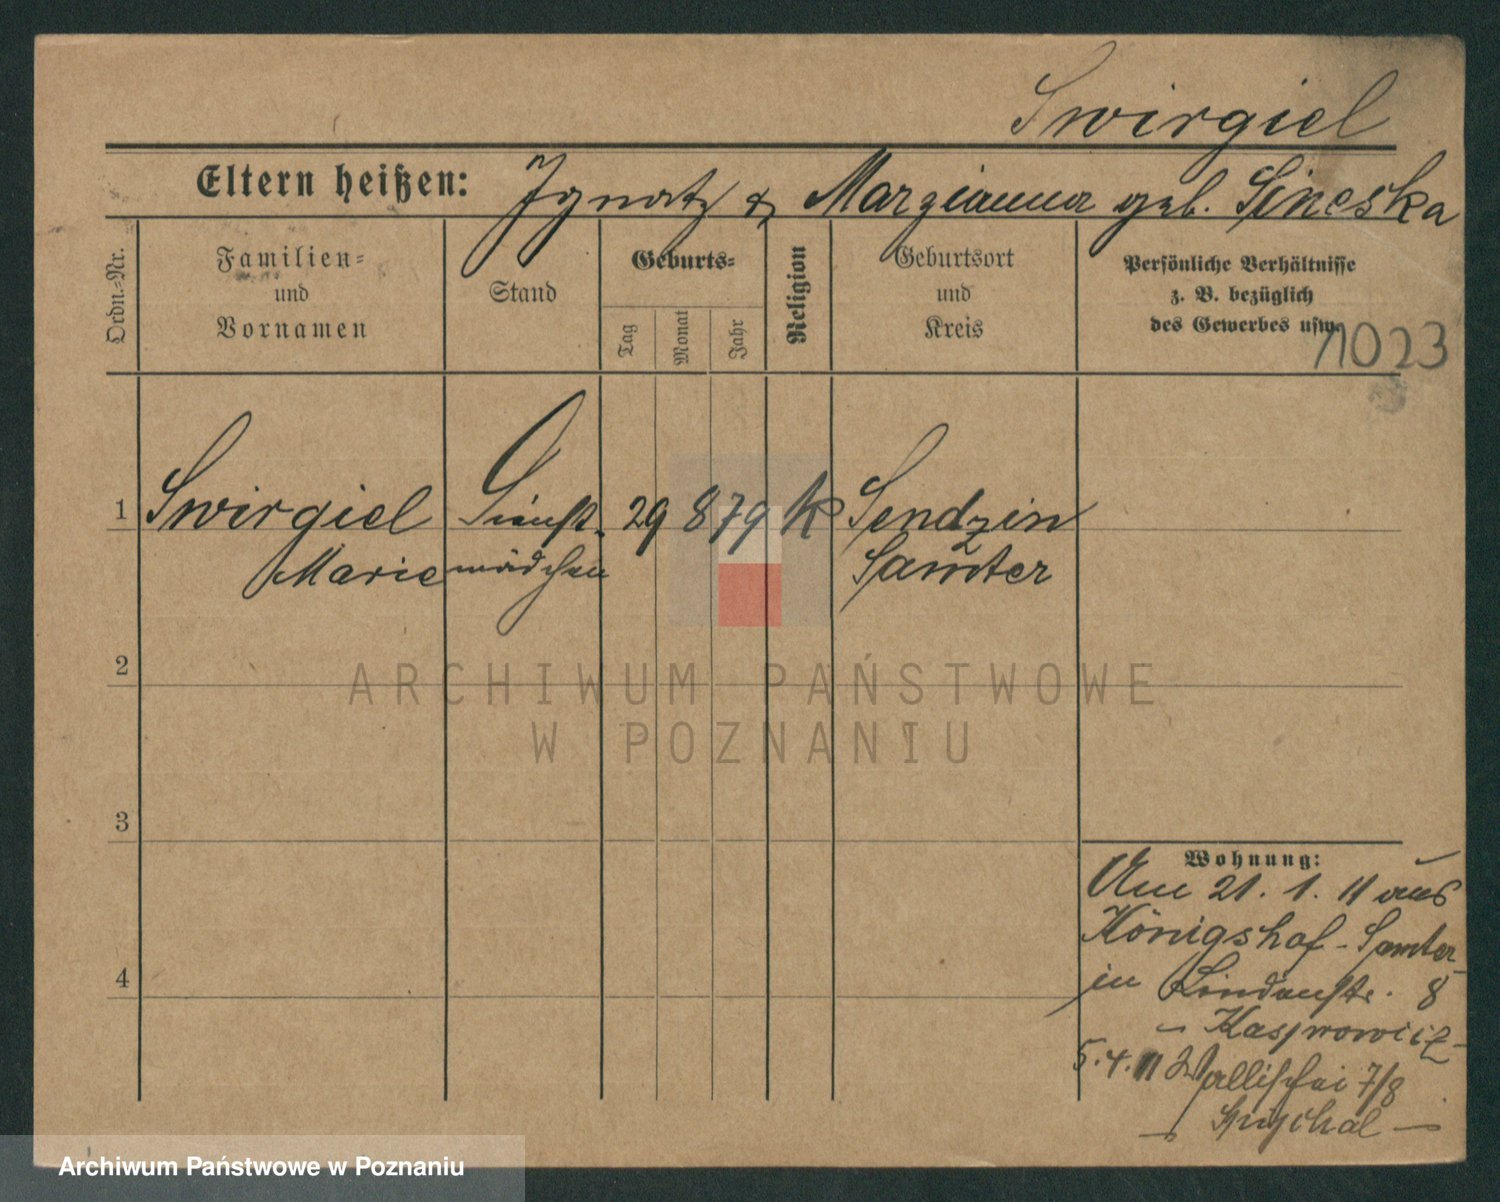 Swirgiel
Eltern heißen: Ignatz & Marzianna geb. Sineska
Ordn.-Nr.
Familien- und Vornamen
Stand
Geburts-
Tag
Monat
Jahr
Religion
Geburtsort und Kreis
Persönliche Verhältnisse
z. B. bezüglich
des Gewerbes usw.
1023
1 Swirgiel Dienst- 29 8 79 K Sendzin
Marie mädchen Samter
2
ARCHIWUM PAŃSTWOWE
W POZNANIU
3
4
Wohnung:
Am 21. 1. 11 aus
Königshof - Samter
in Lindenstr. 8
- Kasprowicz -
5.4.11 Wallischei 7/8
Archiwum Państwowe w Poznaniu